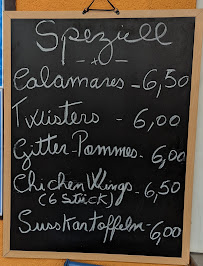 Speziell
Calamares - 6,50
Twisters - 6,00
Gitter-Pommes - 6,00
Chicken Wings - 6,50
(6 Stück)
Susskartoffeln - 6,00